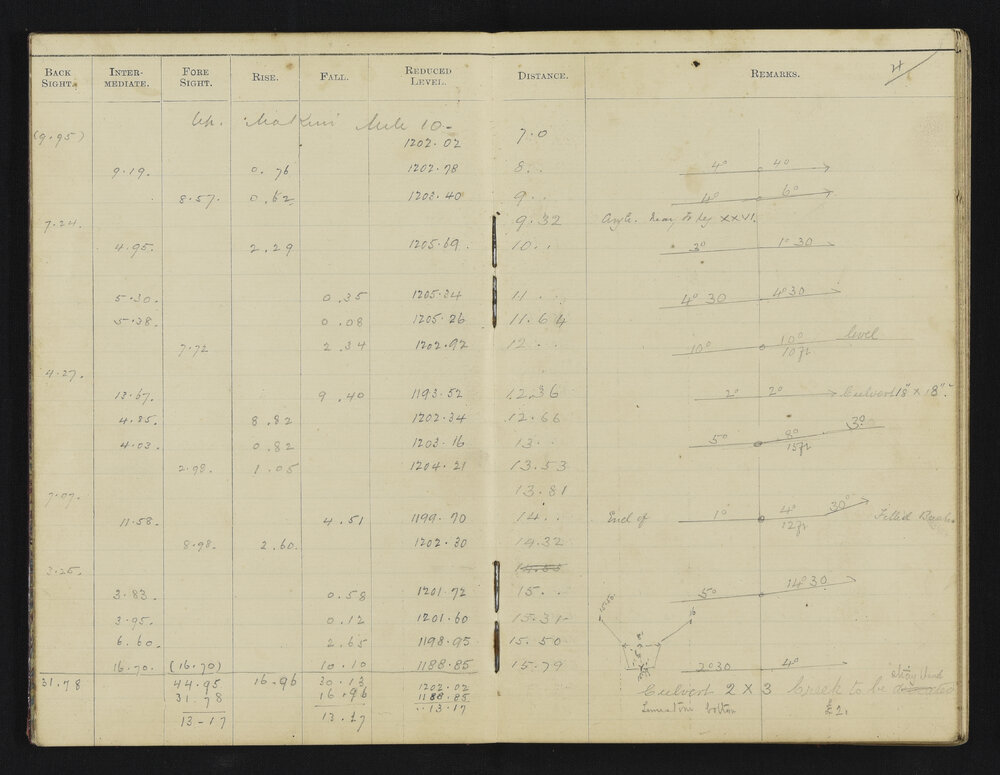 BACK SIGHT. INTER-MEDIATE. FORE SIGHT. RISE. FALL. REDUCED LEVEL. DISTANCE. REMARKS. 4
Mile 10-
(9.95) 1202.02 7.0
9.19. 0.76 1202.78 8.. 4° 4°
8.57. 0.62 1203.40 9.. 4° 6°
7.24. 9.32 Angle. near to Leg XXVI.
4.95. 2.29 1205.69. 10.. 3° 1° 30
5.30. 0.35 1205.34 11.. 4° 30 4° 30
5.38. 0.08 1205.26 11.64
7.72 2.34 1202.92 12.. 10° 10° 10ft level
4.27.
13.67. 9.40 1193.52 12.36 2° 2° Culvert 18" x 18".
4.85. 8.82 1202.34 12.66
4.03. 0.82 1203.16 13.. 5° 8° 15ft 3°
2.98. 1.05 1204.21 13.53
7.07. 13.81
11.58. 4.51 1199.70 14.. End of 1° 4° 12ft 30° Filled
8.98. 2.60. 1202.30 14.32
3.25. 14.55
3.83. 0.58 1201.72 15.. 5° 14° 30
3.95. 0.12 1201.60 15.31
6.60. 2.65 1198.95 15.50
16.70. (16.70) 10.10 1188.85 15.79 2° 30 4°
31.78 44.95 16.96 30.13 1202.02 Culvert 2 x 3 Creek to be
31.78 16.96 1188.85 Limestone bottom £2.
13-17 13.17 13.17